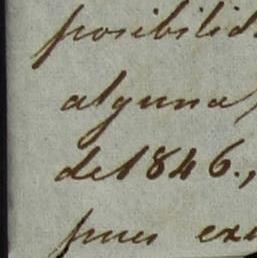 posibilid
alguna
de 1846.,
pues exi